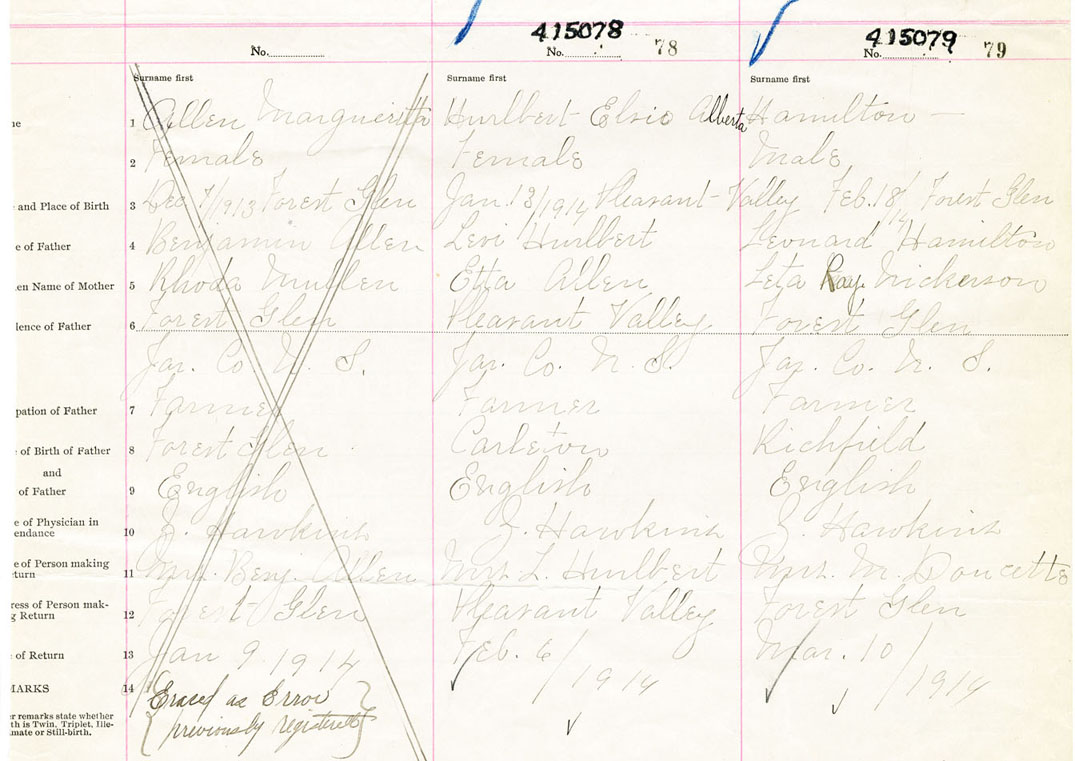 415078 415079
No. No. 78 No. 79
Surname first Surname first Surname first
1 Allen Marguerita Hurlbert Elsie Alberta Hamilton —
2 Female Female Male
and Place of Birth 3 Dec 7/1913 Forest Glen Jan. 13/1914 Pleasant Valley Feb. 18/14 Forest Glen
e of Father 4 Benjamin Allen Levi Hurlbert Leonard Hamilton
en Name of Mother 5 Rhoda Mullen Etta Allen Leta Ray Nickerson
dence of Father 6 Forest Glen Pleasant Valley Forest Glen
Yar. Co. N. S. Yar. Co. N. S. Yar. Co. N. S.
pation of Father 7 Farmer Farmer Farmer
of Birth of Father 8 Forest Glen Carleton Richfield
and
of Father 9 English English English
e of Physician in
endance 10 Hawkins Hawkins Hawkins
e of Person making
turn 11 Mrs. Benj. Allen Mrs. L. Hurlbert Mrs. M. Doucette
ress of Person mak-
g Return 12 Forest Glen Pleasant Valley Forest Glen
of Return 13 Jan 9 1914 Feb. 6/1914 Mar. 10/1914
MARKS 14 Erased as Error
previously registered
er remarks state whether
th is Twin, Triplet, Ille-
mate or Still-birth.